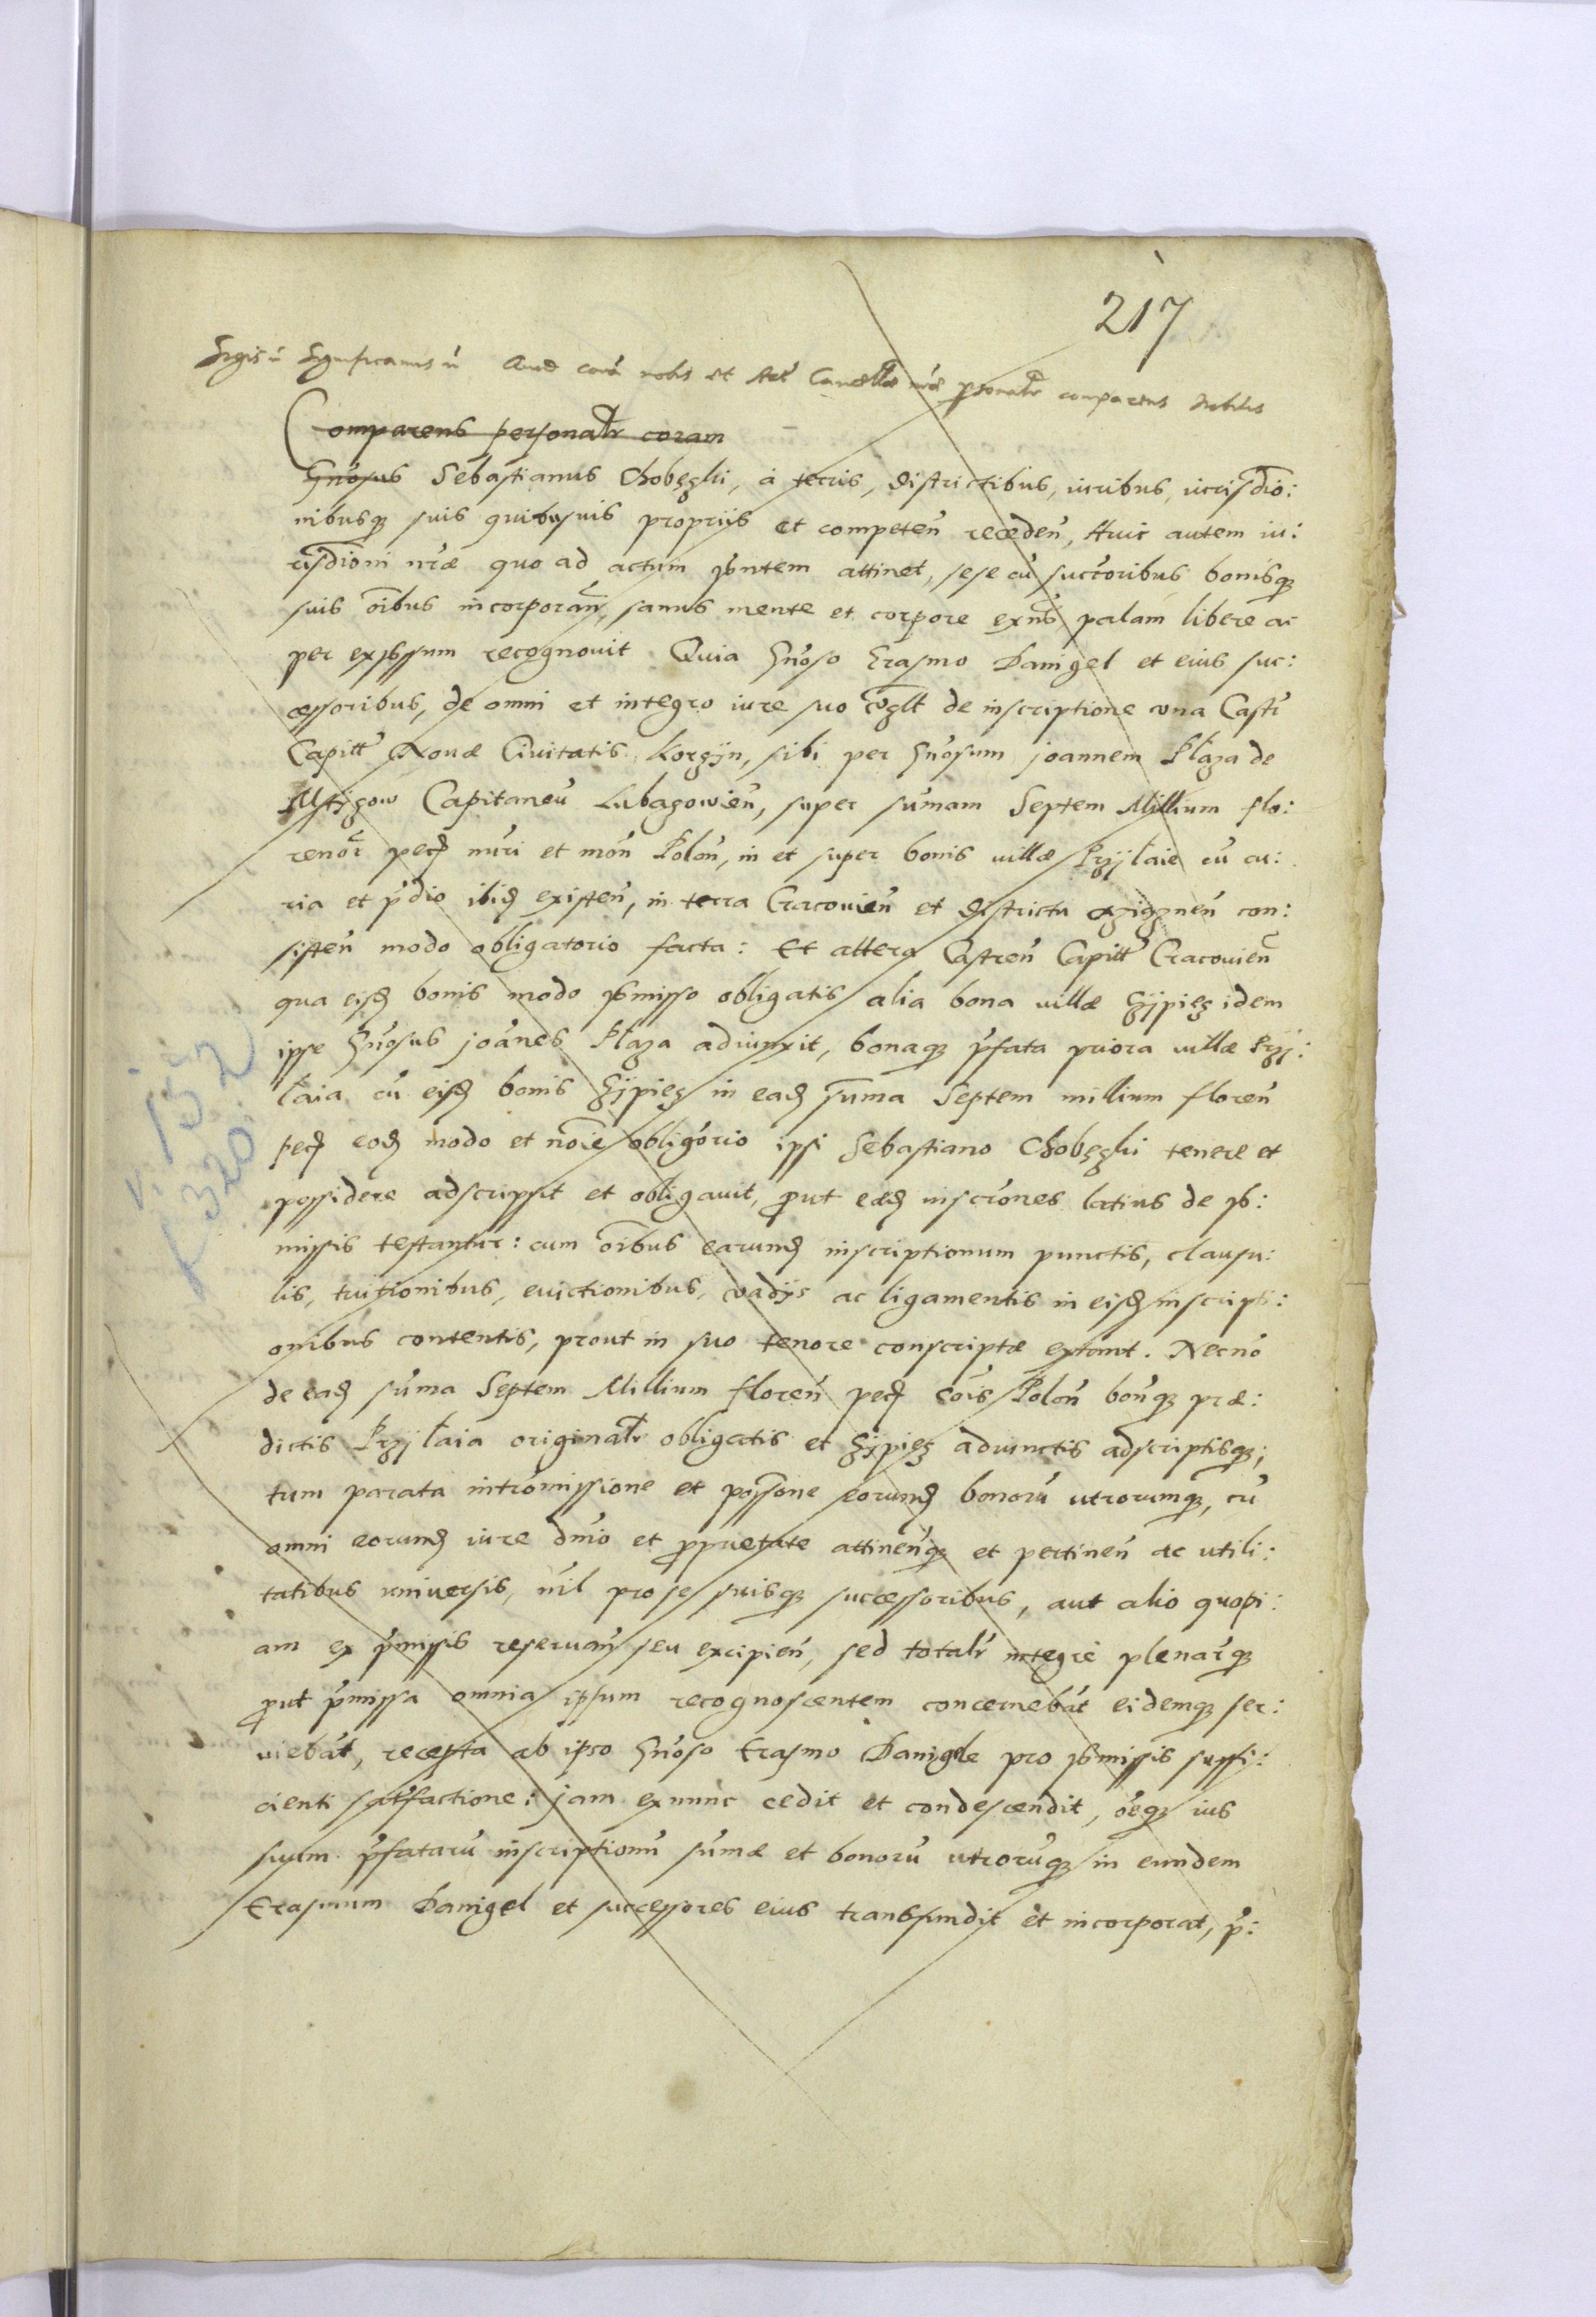 217
Sigis: Significamus Quod corã nobis et Act̃ Cancellæ nr̃æ p̱sonalr̃ comparens Nobilis
Comparens personalr̃ coram
Gn̄osus Sebastianus Chobęzki, a terris, districtibus, iuribus, iurisdio:
nibusq; suis quibusuis proprijs et competeñ recedeñ, Huic autem iu:
risdioni nr̃æ quo ad actum pñtem attinet, sese cũ succ̃oribus bonisq;
suis om̃ibus incorporañ, sanus mente et corpore exñs, palam libere ac
per expr̃ssum recognouit Quia Gñoso Erasmo Danigel et eius suc:
cessoribus, de omni et integro iure suo de inscriptione una Castr̃
Capitt̃ Nouæ Ciuitatis Korzÿn, sibi per Gñosum joannem Płaza de
Mstÿzow Capitaneũ Lubazowieñ, super sũmam Septem Millium flo:
renor̃ pecũ nũri et moñ Poloñ, in et super bonis villæ Przÿłaie cũ cu:
ria et p̃dio ibid̃ existeñ, in terra Cracouieñ et districtu con:
sisteñ modo obligatorio facta: Et altera Castreñ Capitt̃ Cracouieñ
qua eisd̃ bonis modo p̃misso obligatis alia bona villæ idem
ipse Gñosus joãnes Płaza adiunxit, bonaq; p̃fata priora villæ Przÿ:
łaia cũ eisd̃ bonis in ead̃ sũma Septem millium floreñ
pec̃ eod̃ modo et noĩe oblig̃orio ipsi Sebastiano Chobęzki tenere et
possidere adscripsit et obligauit, p̱ut eæd̃ inscr̃ones latius de p̃:
missis testantur: cum om̃ibus earumd̃ inscriptionum punctis, clausu:
lis, tuitionibus, euictionibus, vadÿs ac ligamentis in eisd̃ inscripti:
onibus contentis, prout in suo tenore conscriptæ extant. Necnõ
de ead̃ sũma Septem Millium floreñ pec̃ cõis Poloñ boñq; præ:
dictis Przÿłaia originalr̃ obligatis et adiunctis adscriptisq;
tum parata intromissione et possõne eorumd̃ bonorũ utrorumq;, cũ
omni eorumd̃ iure dñio et p̱prietate attineñq; et pertineñ ac utili:
tatibus uniuersis, nil pro se suisq; successoribus, aut alio quopi:
am ex p̃missis reseruañ seu excipieñ, sed totalr̃ integre plenar̃q;
p̱ut p̃missa omnia ipsum recognoscentem concernebãt eidemq; ser:
uiebãt, recepta ab ipso Gñoso Erasmo Danigle pro p̃missis suffi:
cienti satisfactione: jam exnunc cedit et condescendit, om̃eq; ius
suum p̃fatarũ inscriptionũ sũmæ et bonorũ utrorũq; in eundem
Erasmum Danigel et successores eius transfundit et incorporat, p̃:
V. 152
f 320